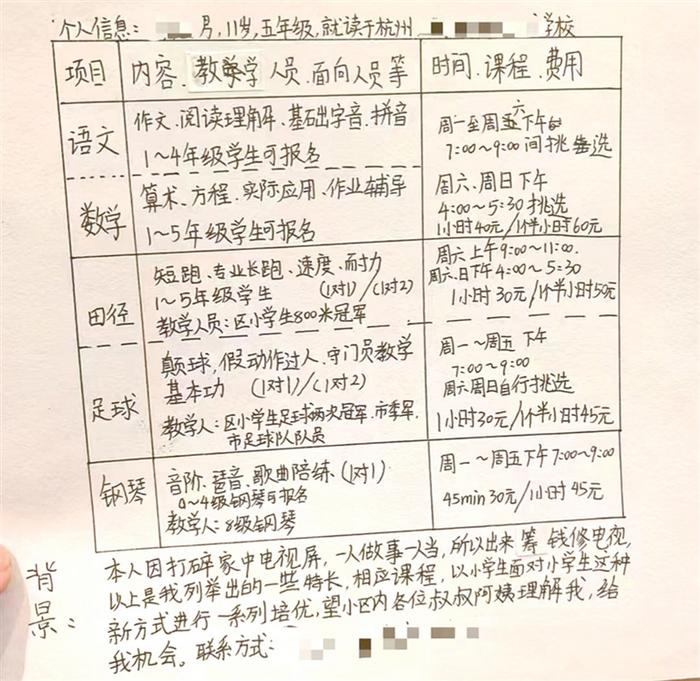 个人信息: 男, 11岁, 五年级, 就读于杭州 学校
项目 内容、教学人员、面向人员等 时间、课程、费用
语文
作文、阅读理解、基础字音、拼音
1~4年级学生可报名
周一至周六下午
7:00~9:00间挑选
数学
算术、方程、实际应用、作业辅导
1~5年级学生可报名
周六、周日下午
4:00~5:30 挑选
1小时40元/1个半小时60元
田径
短跑、专业长跑、速度、耐力
1~5年级学生 (1对1)/(1对2)
教学人员:区小学生800米冠军
周六上午9:00~11:00.
周六.日下午4:00~5:30
1小时30元/1个半小时50元
足球
颠球, 假动作过人、守门员教学
基本功 (1对1)/(1对2)
教学人:区小学生足球两次冠军、市季军、
市足球队队员
周一~周五 下午
7:00~9:00
周六周日自行挑选
1小时30元/1个半小时45元
钢琴
音阶、琶音、歌曲陪练 (1对1)
0~4级钢琴可报名
教学人:8级钢琴
周一~周五下午7:00~9:00
45min 30元/1小时 45元
背景:
本人因打碎家中电视屏, 一人做事一人当, 所以出来 筹 钱修电视,
以上是我列举出的一些特长, 相应课程, 以小学生面对小学生这种
新方式进行一系列培优, 望小区内各位叔叔阿姨理解我, 给
我机会。联系方式: